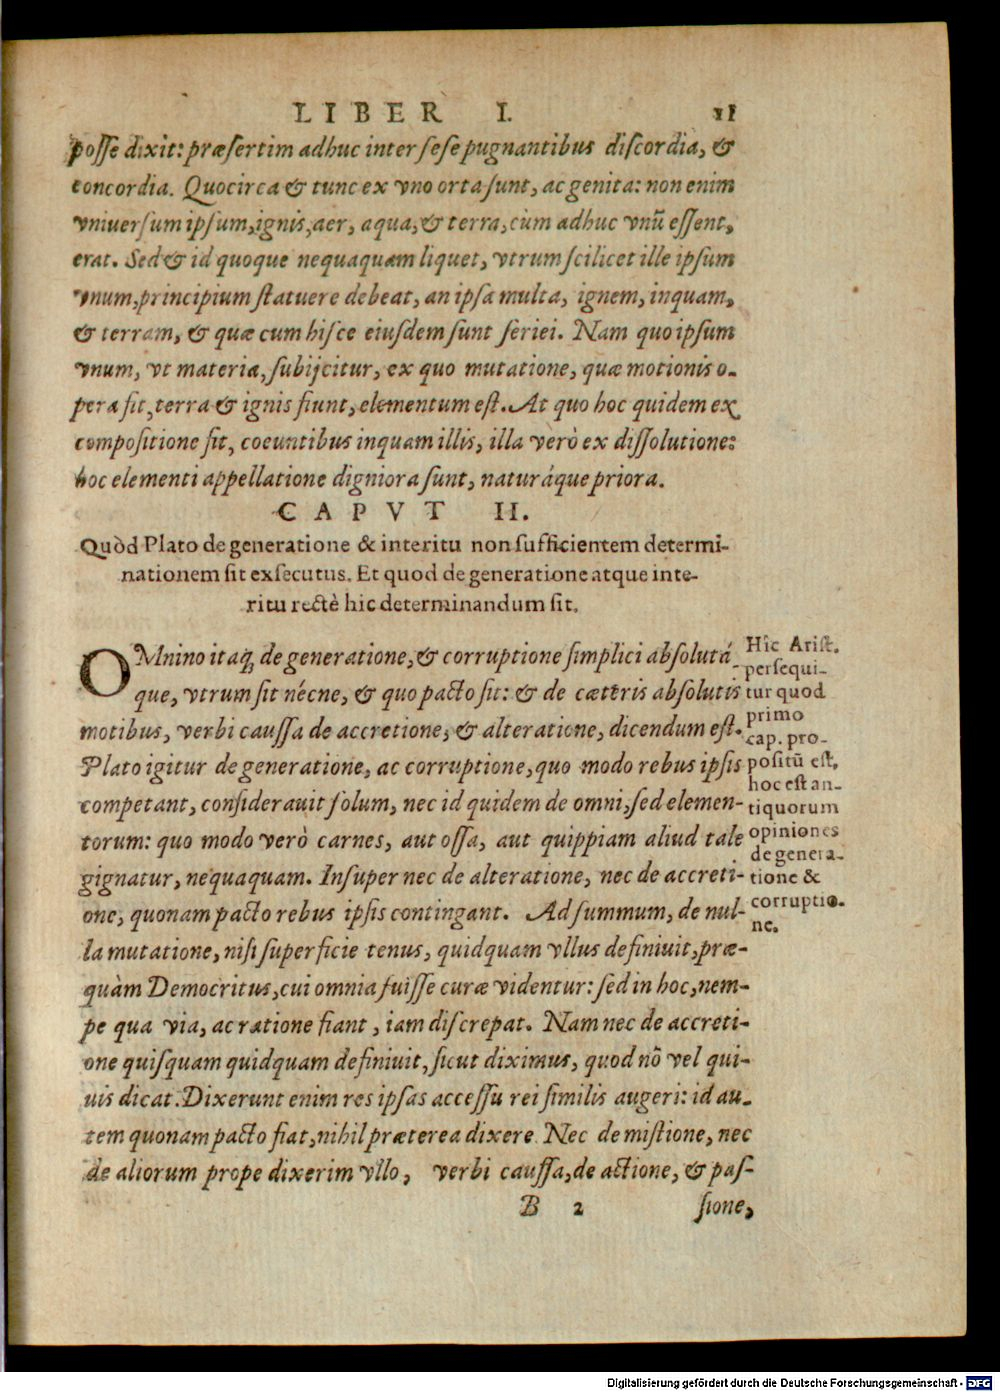 LIBER I. 11
posse dixit: præsertim adhuc inter sese pugnantibus discordia, &
concordia. Quocirca & tunc ex vno orta sunt, ac genita: non enim
vniuersum ipsum, ignis, aer, aqua, & terra, cùm adhuc vnũ essent,
erat. Sed & id quoque nequaquam liquet, vtrum scilicet ille ipsum
vnum, principium statuere debeat, an ipsa multa, ignem, inquam,
& terram, & quæ cum hisce eiusdem sunt seriei. Nam quo ipsum
vnum, vt materia, subijcitur, ex quo mutatione, quæ motionis o-
pera fit, terra & ignis fiunt, elementum est. At quo hoc quidem ex
compositione fit, coeuntibus inquam illis, illa verò ex dissolutione:
hoc elementi appellatione digniora sunt, naturáque priora.
CAPVT II.
Quòd Plato de generatione & interitu non sufficientem determi-
nationem sit exsecutus. Et quod de generatione atque inte-
ritu rectè hic determinandum sit.
OMnino itaq; de generatione, & corruptione simplici absolutá
que, vtrum sit nécne, & quo pacto sit: & de cæteris absolutis
motibus, verbi caussa de accretione, & alteratione, dicendum est.
Plato igitur de generatione, ac corruptione, quo modo rebus ipsis
competant, considerauit solum, nec id quidem de omni, sed elemen-
torum: quo modo verò carnes, aut ossa, aut quippiam aliud tale
gignatur, nequaquam. Insuper nec de alteratione, nec de accreti-
one, quonam pacto rebus ipsis contingant. Ad summum, de nul-
la mutatione, nisi superficie tenus, quidquam vllus definiuit, præ-
quàm Democritus, cui omnia fuisse curæ videntur: sed in hoc, nem-
pe qua via, ac ratione fiant, iam discrepat. Nam nec de accreti-
one quisquam quidquam definiuit, sicut diximus, quod nõ vel qui-
uis dicat. Dixerunt enim res ipsas accessu rei similis augeri: id au-
tem quonam pacto fiat, nihil præterea dixere. Nec de mistione, nec
de aliorum prope dixerim vllo, verbi caussa, de actione, & pas-
B 2 sione,
Hîc Arist.
persequi-
tur quod
primo
cap. pro-
positũ est,
hoc est an-
tiquorum
opiniones
de genera-
tione &
corruptio-
ne.
Digitalisierung gefördert durch die Deutsche Forschungsgemeinschaft - DFG